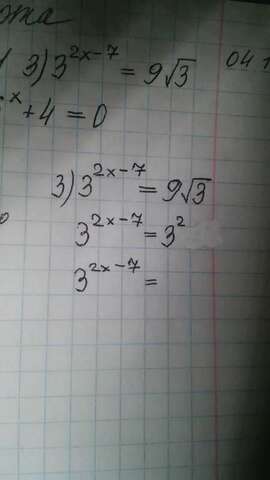 3) 3^{2x-7} = 9√3
^x + 4 = 0
3) 3^{2x-7} = 9√3
3^{2x-7} = 3^2
3^{2x-7} =